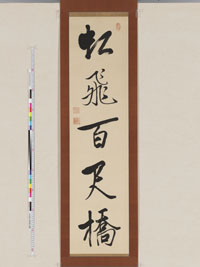 虹飛百尺橋